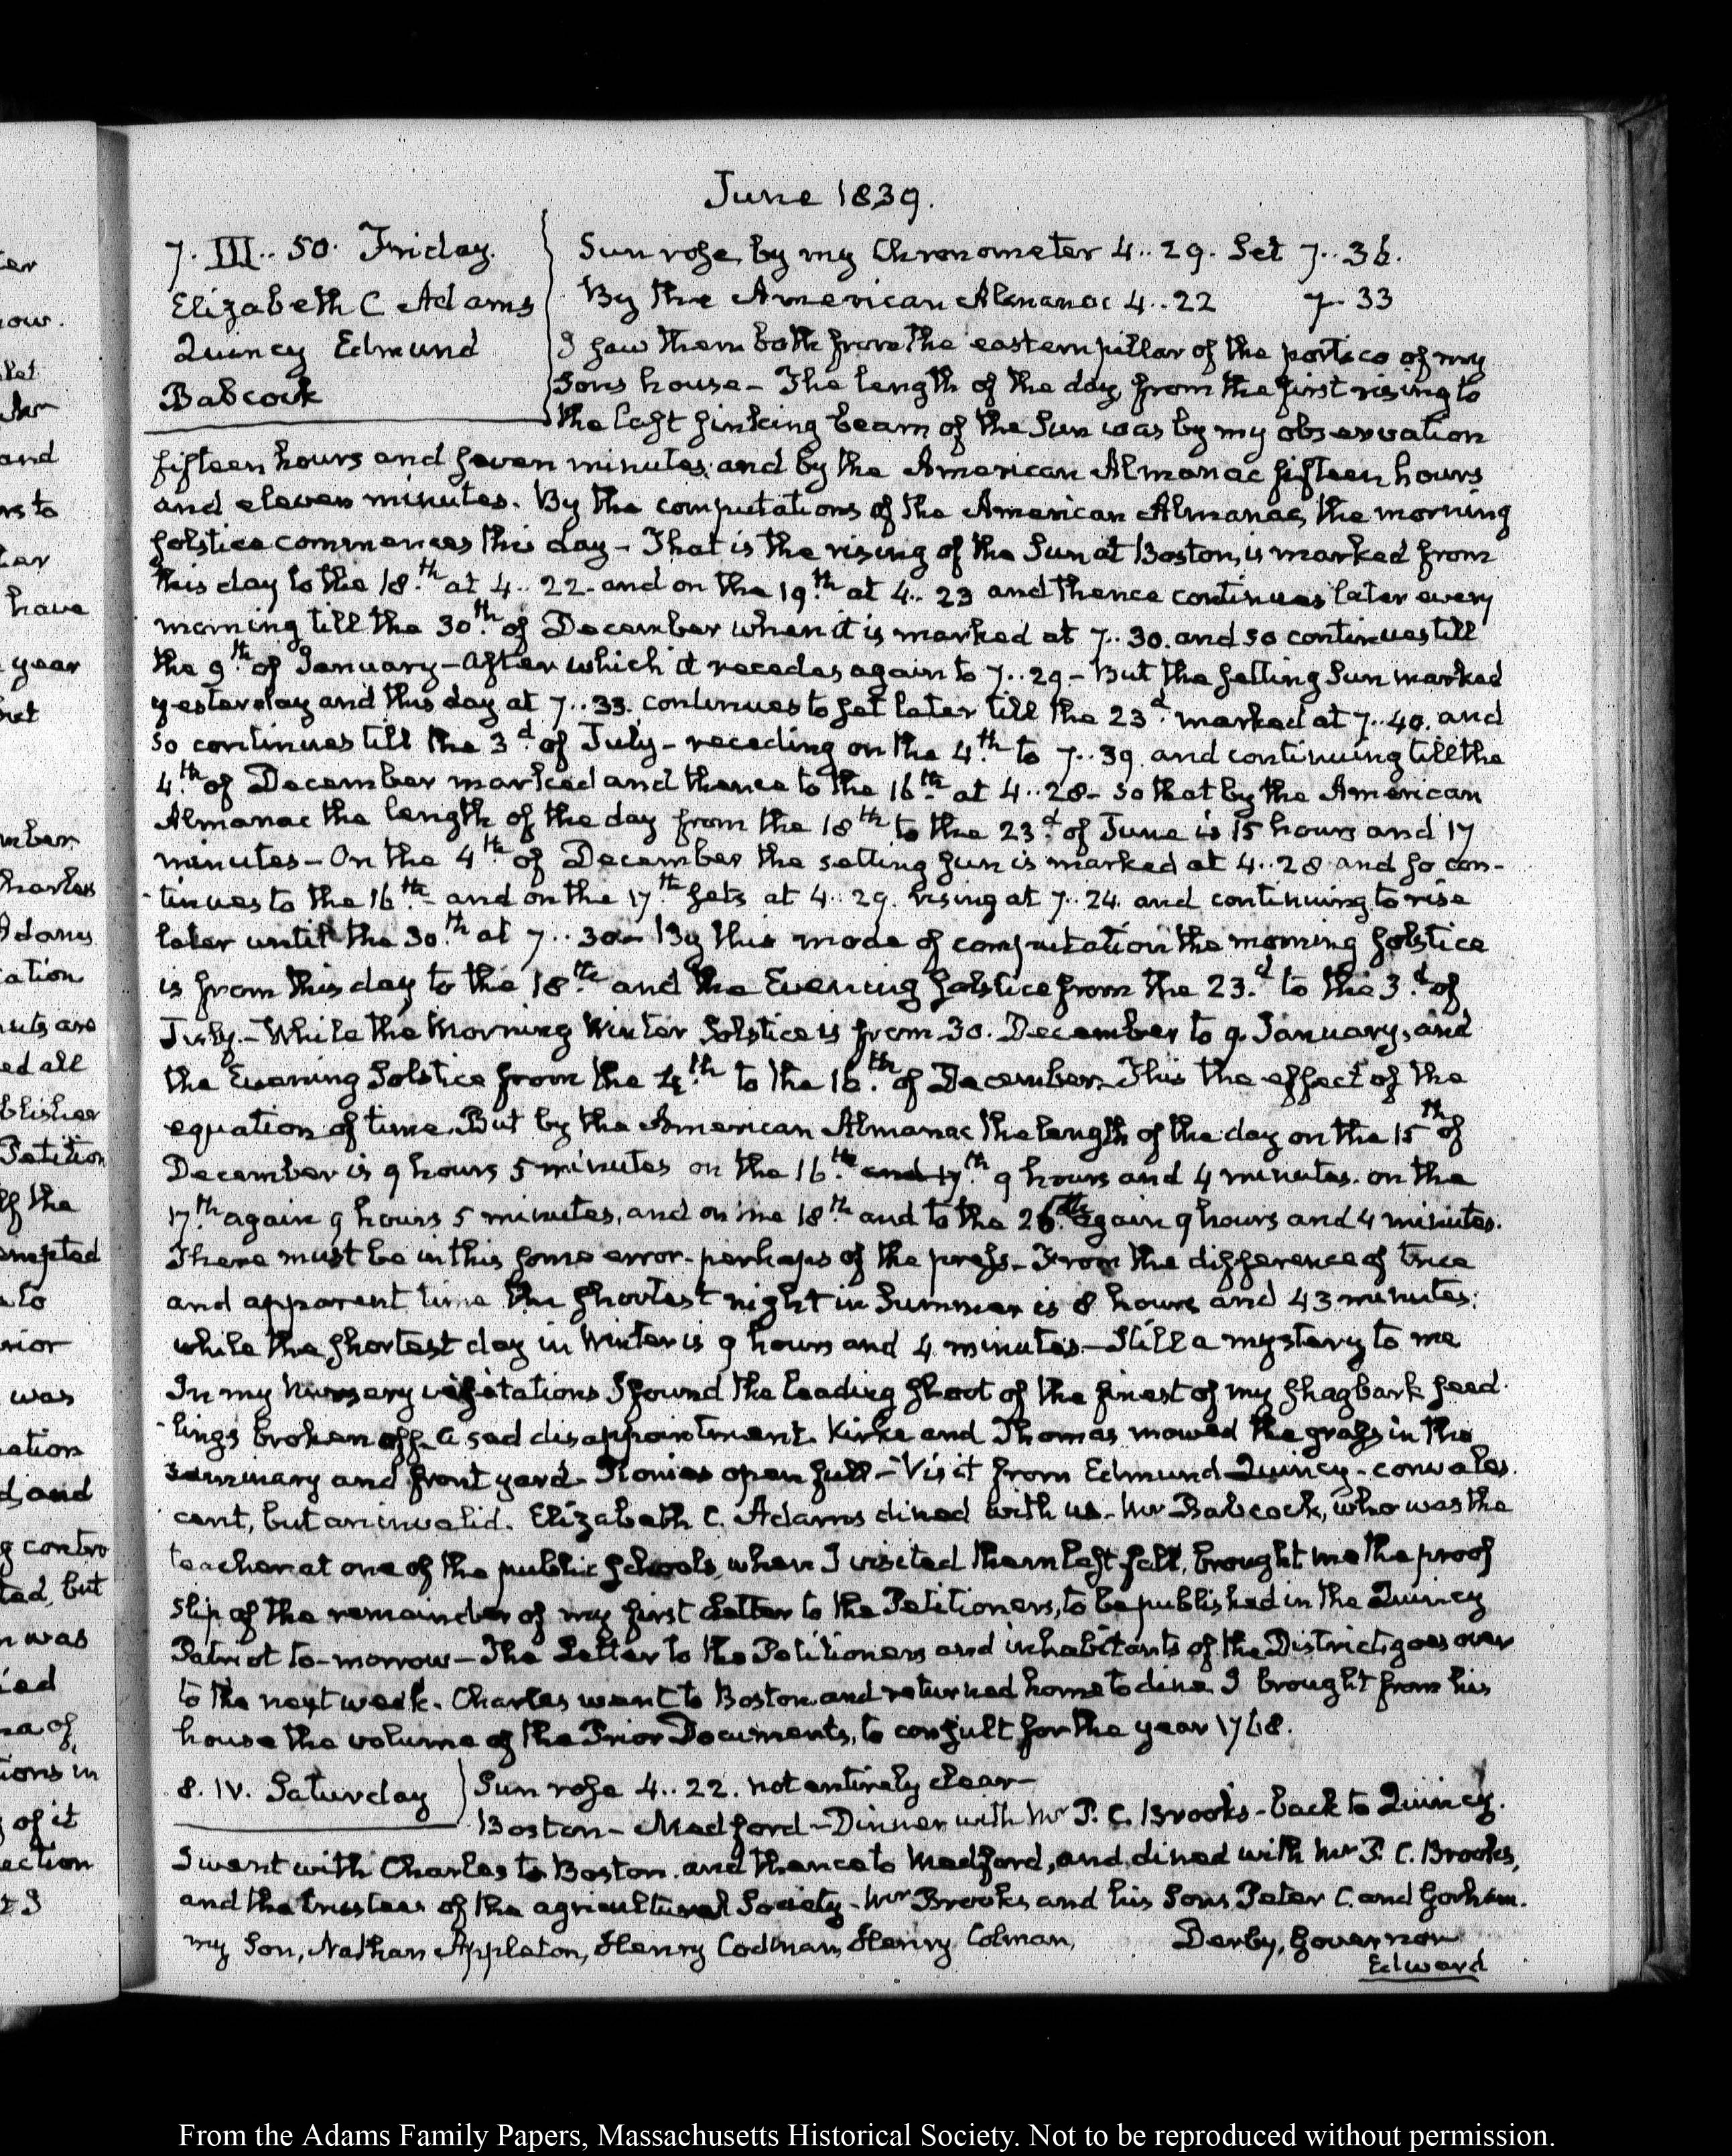 June 1839.
7. III.. 50. Friday.
Elizabeth C Adams
Quincy Edmund
Babcock
Sun rose, by my Chronometer 4..29. Set 7..36.
By the American Almanac 4..22 7..33
I saw them both from the eastern pillar of the portico of my
Sons house – The length of the day, from the first rising to
the last sinking beam of the Sun was by my observation
fifteen hours and seven minutes, and by the American Almanac fifteen hours
and eleven minutes. By the computations of the American Almanac, the morning
solstice commences this day – That is the rising of the Sun at Boston, is marked from
this day to the 18.th at 4..22 – and on the 19.th at 4..23 and thence continues later every
morning till the 30.th of December when it is marked at 7..30. and so continues till
the 9.th of January – After which it recedes again to 7..29 – But the setting Sun marked
yesterday and this day at 7..33. continues to set later till the 23.d marked at 7..40. and
so continues till the 3.d of July – receding on the 4.th to 7..39. and continuing till the
4.th of December marked and thence to the 16.th at 4..28 – so that by the American
Almanac the length of the day from the 18.th to the 23.d of June is 15 hours and 17
minutes – On the 4.th of December the setting Sun is marked at 4..28 and so con-
-tinues to the 16.th – and on the 17.th sets at 4..29. rising at 7..24. and continuing to rise
later until the 30.th at 7..30 – By this mode of computation the morning solstice
is from this day to the 18.th and the Evening Solstice from the 23.d to the 3.d of
July. – While the Morning Winter Solstice is from 30. December to 9. January, and
the Evening Solstice from the 4.th to the 16.th of December. This the effect of the
equation of time. But by the American Almanac the length of the day on the 15th of
December is 9 hours 5 minutes on the 16.th and 17.th 9 hours and 4 minutes. on the
17.th again 9 hours 5 minutes, and on the 18.th and to the 26.th again 9 hours and 4 minutes.
There must be in this some error – perhaps of the press – From the difference of true
and apparent time the shortest night in Summer is 8 hours and 43 minutes;
while the shortest day in Winter is 9 hours and 4 minutes – Still a mystery to me
In my Nursery visitations I found the leading shoot of the finest of my shagbark seed-
-lings broken off – a sad disappointment. Kirke and Thomas mowed the grass in the
seminary and front yard. Pionies open full – Visit from Edmund Quincy – convales-
cent, but an invalid. Elizabeth C. Adams dined with us – Mr Babcock, who was the
teacher at one of the public schools, when I visited them last fall, brought me the proof
slip of the remainder of my first Letter to the Petitioners, to be published in the Quincy
Patriot to-morrow – The Letter to the Petitioners and inhabitants of the District, goes over
to the next week. Charles went to Boston and returned home to dine. I brought from his
house the volume of the Prior Documents, to consult for the year 1768.
8. IV. Saturday
Sun rose 4..22. not entirely clear –
Boston – Medford – Dinner with Mr P. C. Brooks – back to Quincy.
I went with Charles to Boston and thence to Medford, and dined with Mr P. C. Brooks,
and the trustees of the agricultural Society – Mr Brooks and his Sons Peter C. and Gorham.
my Son, Nathan Appleton, Henry Codman, Henry Colman, Derby, Governor
Edward
ter
now.
and
rs to
ter
have
year
mber
Charles
Adams
ation
ed all
blisher
Petition
of the
to
was
ation
d, and
g contro
ted, but
n was
ied
ea of
ions in
of it
ection
I
From the Adams Family Papers, Massachusetts Historical Society. Not to be reproduced without permission.